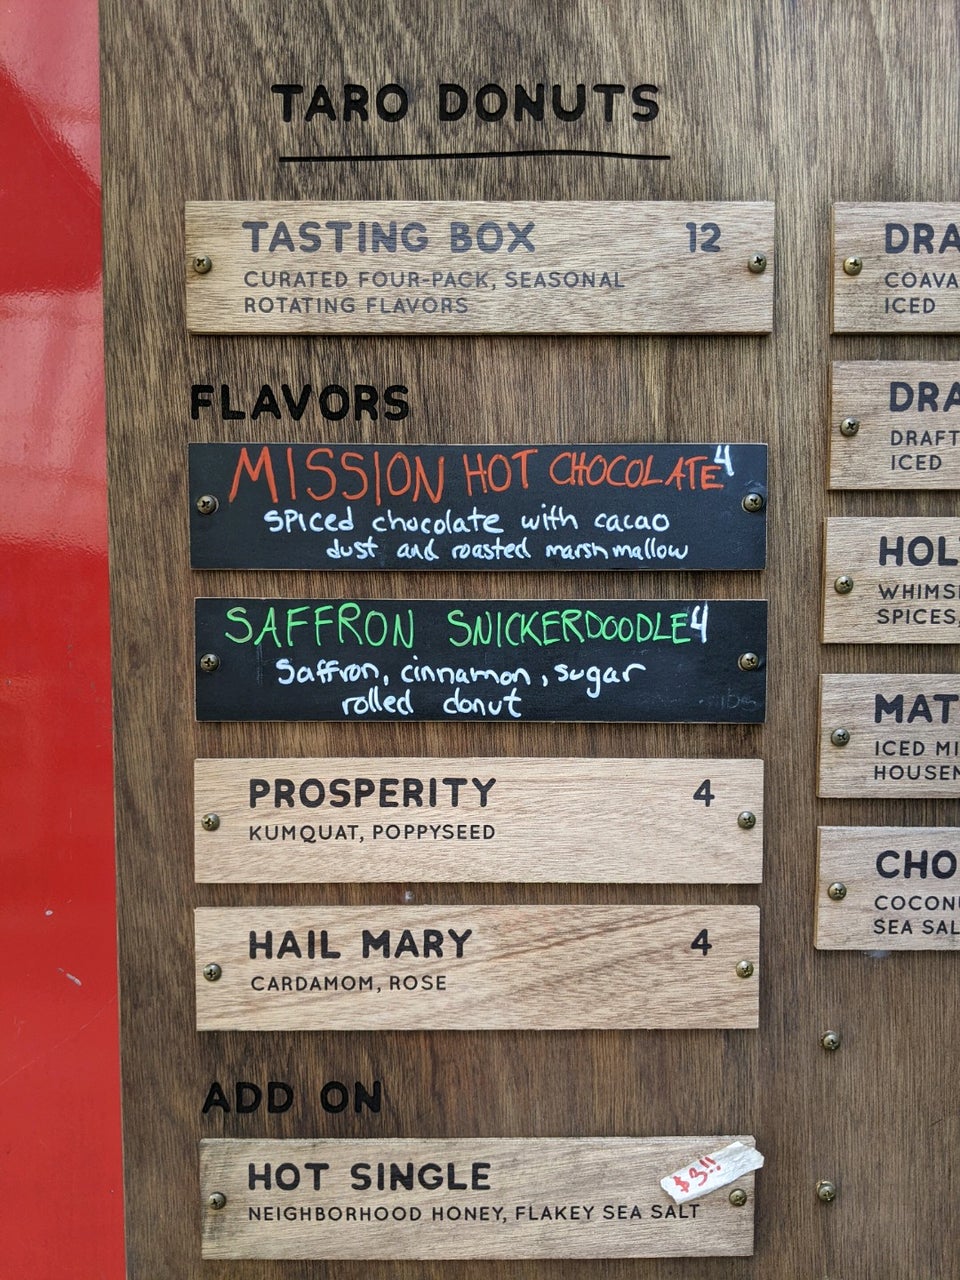 TARO DONUTS
TASTING BOX 12
CURATED FOUR-PACK, SEASONAL
ROTATING FLAVORS
FLAVORS
MISSION HOT CHOCOLATE 4
spiced chocolate with cacao
dust and roasted marshmallow
SAFFRON SNICKERDOODLE 4
Saffron, cinnamon, sugar
rolled donut
PROSPERITY 4
KUMQUAT, POPPYSEED
HAIL MARY 4
CARDAMOM, ROSE
ADD ON
HOT SINGLE $3!!
NEIGHBORHOOD HONEY, FLAKEY SEA SALT
DRA
COAVA
ICED
DRA
DRAFT
ICED
HOL
WHIMS
SPICES,
MAT
ICED MI
HOUSEM
CHO
COCONU
SEA SAL